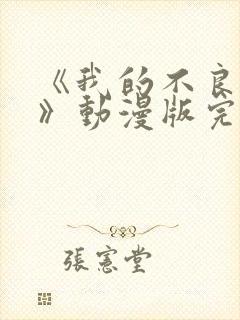 《我的不良
》動漫版完
張憲堂